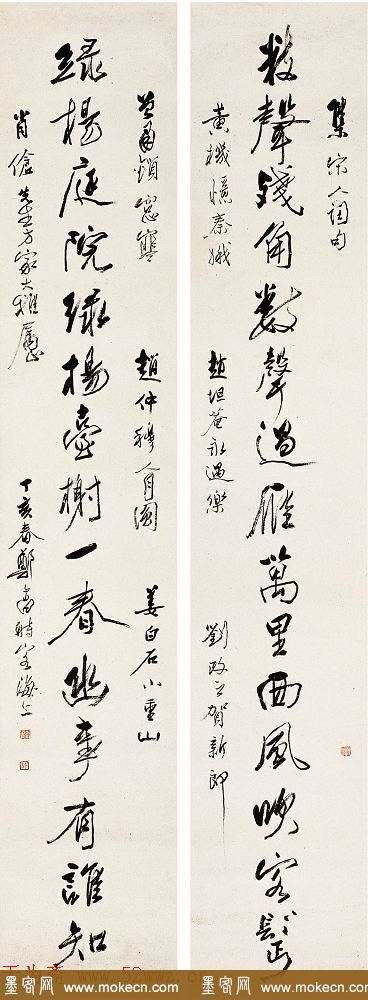 集宋人詞句
數聲殘角數聲過雁萬里西風吹客鬢
黃機憶秦娥
趙坦菴永遇樂
劉改之賀新郎
鎖窗寒
趙仲穆人月圓
姜白石小重山
綠楊庭院綠楊臺榭一春幽事有誰知
肖傖先生方家大雅屬
丁亥春鄭時客海上
墨客网 www.mokecn.com 墨客网 www.mokecn.com